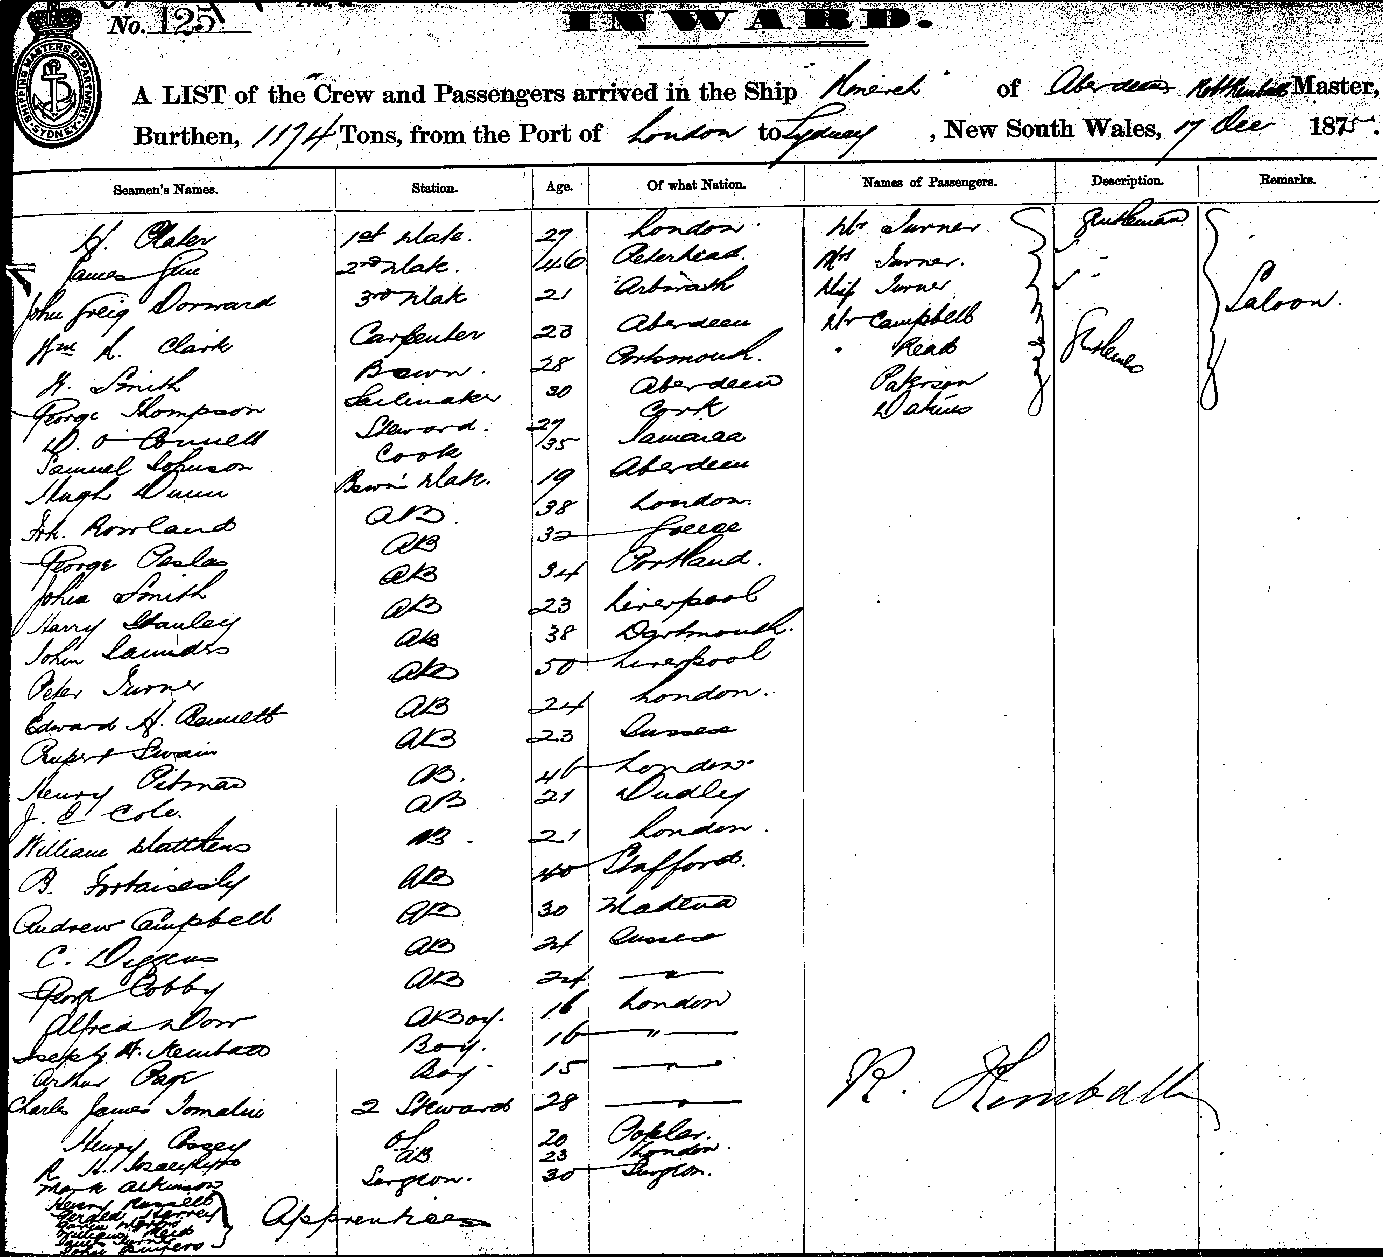 No. 1257
INWARD.
SHIPPING MASTERS DEPARTMENT SYDNEY
A LIST of the Crew and Passengers arrived in the Ship "Monarch" of Aberdeen Master,
Burthen, 1174 Tons, from the Port of London to Sydney, New South Wales, 17 Dec 1875.
Seamen's Names. Station. Age. Of what Nation. Names of Passengers. Description. Remarks.
H. Plater 1st Mate. 27 London. Mr Turner Gentleman
James 2nd Mate. 46 Peterhead. Mrs Turner. "
John Greig Dorward 3rd Mate 21 Arbroath Miss Turner Saloon.
Wm R. Clark Carpenter 23 Aberdeen Mr Campbell
H. Smith Bswn. 28 Portsmouth. " Read
George Thompson Sailmaker 30 Aberdeen Paterson
D. O'Connell Steward. 27 Cork
Samuel Johnson Cook 35 Jamaica
Hugh Dunn Bswn's Mate. 19 Aberdeen
Rowland AB. 38 London.
George AB 32 Greece
John Smith AB 34 Portland.
Harry Stanley AB 23 Liverpool
John Saunders AB 38 Dartmouth.
Peter Turner AB 50 Liverpool
Edward H. Bennett AB 24 London.
Rupert Swain AB 23 Sussex
Henry Pitman AB. 46 London.
J. C. Cole. AB 21 Dudley
William Matthews AB. 21 London.
B. AB 40 Stafford.
Andrew Campbell AB 30 Madeira
C. Diggens AB 24 Sussex
George Cobby AB 24 "
Alfred Dorr Boy. 16 London
Joseph H. Kemball Boy. 16 "
Arthur Page Boy 15 "
Charles James Tomalin 2 Steward 28 "
Henry Cossey OS 20 Poplar.
R. H. AB 23 London.
Mark Atkinson Surgeon. 30 Surgeon.
Henry Russell Apprentices
R. Kemball